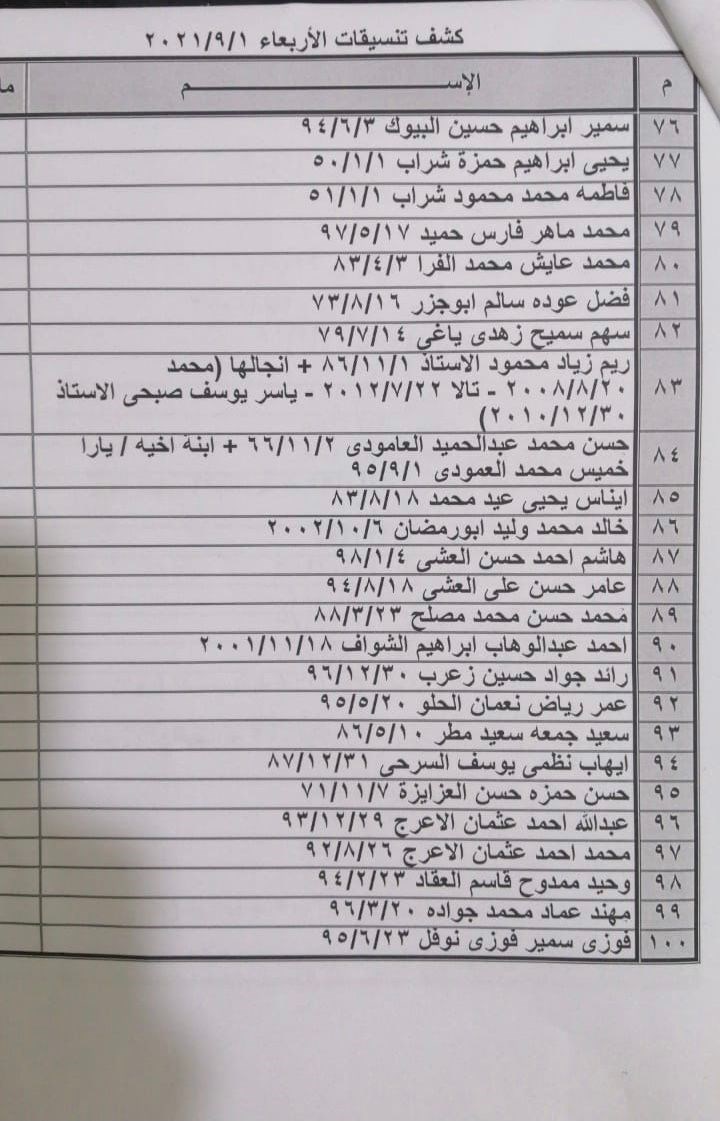 كشف تنسيقات الأربعاء ٢٠٢١/٩/١
م الإســـــــــم
٧٦ سمير ابراهيم حسين البيوك ٩٤/٦/٣
٧٧ يحيى ابراهيم حمزة شراب ٥٠/١/١
٧٨ فاطمه محمد محمود شراب ٥١/١/١
٧٩ محمد ماهر فارس حميد ٩٧/٥/١٧
٨٠ محمد عايش محمد الفرا ٨٣/٤/٣
٨١ فضل عوده سالم ابوجزر ٧٣/٨/١٦
٨٢ سهم سميح زهدى ياغي ٧٩/٧/١٤
٨٣ ريم زياد محمود الاستاذ ٨٦/١١/١ + انجالها (محمد
٢٠٠٨/٨/٢٠ - تالا ٢٠١٢/٧/٢٢ - ياسر يوسف صبحى الاستاذ
٢٠١٠/١٢/٣٠)
٨٤ حسن محمد عبدالحميد العامودى ٦٦/١١/٢ + ابنة اخيه / يارا
خميس محمد العمودى ٩٥/٩/١
٨٥ ايناس يحيى عيد محمد ٨٣/٨/١٨
٨٦ خالد محمد وليد ابورمضان ٢٠٠٢/١٠/٦
٨٧ هاشم احمد حسن العشى ٩٨/١/٤
٨٨ عامر حسن على العشى ٩٤/٨/١٨
٨٩ محمد حسن محمد مصلح ٨٨/٣/٢٣
٩٠ احمد عبدالوهاب ابراهيم الشواف ٢٠٠١/١١/١٨
٩١ رائد جواد حسين زعرب ٩٦/١٢/٣٠
٩٢ عمر رياض نعمان الحلو ٩٥/٥/٢٠
٩٣ سعيد جمعه سعيد مطر ٨٦/٥/١٠
٩٤ ايهاب نظمى يوسف السرحى ٨٧/١٢/٣١
٩٥ حسن حمزه حسن العزايزة ٧١/١١/٧
٩٦ عبدالله احمد عثمان الاعرج ٩٣/١٢/٢٩
٩٧ محمد احمد عثمان الاعرج ٩٢/٨/٢٦
٩٨ وحيد ممدوح قاسم العقاد ٩٤/٢/٢٣
٩٩ مهند عماد محمد جواده ٩٦/٣/٢٠
١٠٠ فوزى سمير فوزى نوفل ٩٥/٦/٢٣